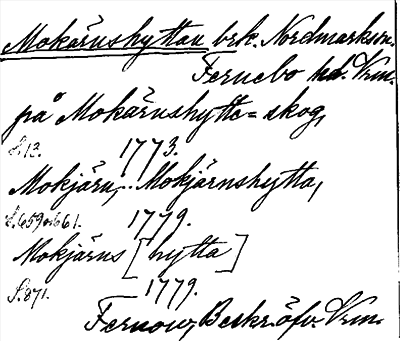 Mokärnshyttan brk. Nordmarkssn.
Fernebo hd. Vrm.
på Mokärnshytte=skog,
s.12. 1773.
Mokjärn, Mokjärnshytta,
s.659o.661. 1779.
Mokjärns [hytta]
s.871. 1779.
Fernow, Beskr.öfv. Vrm.